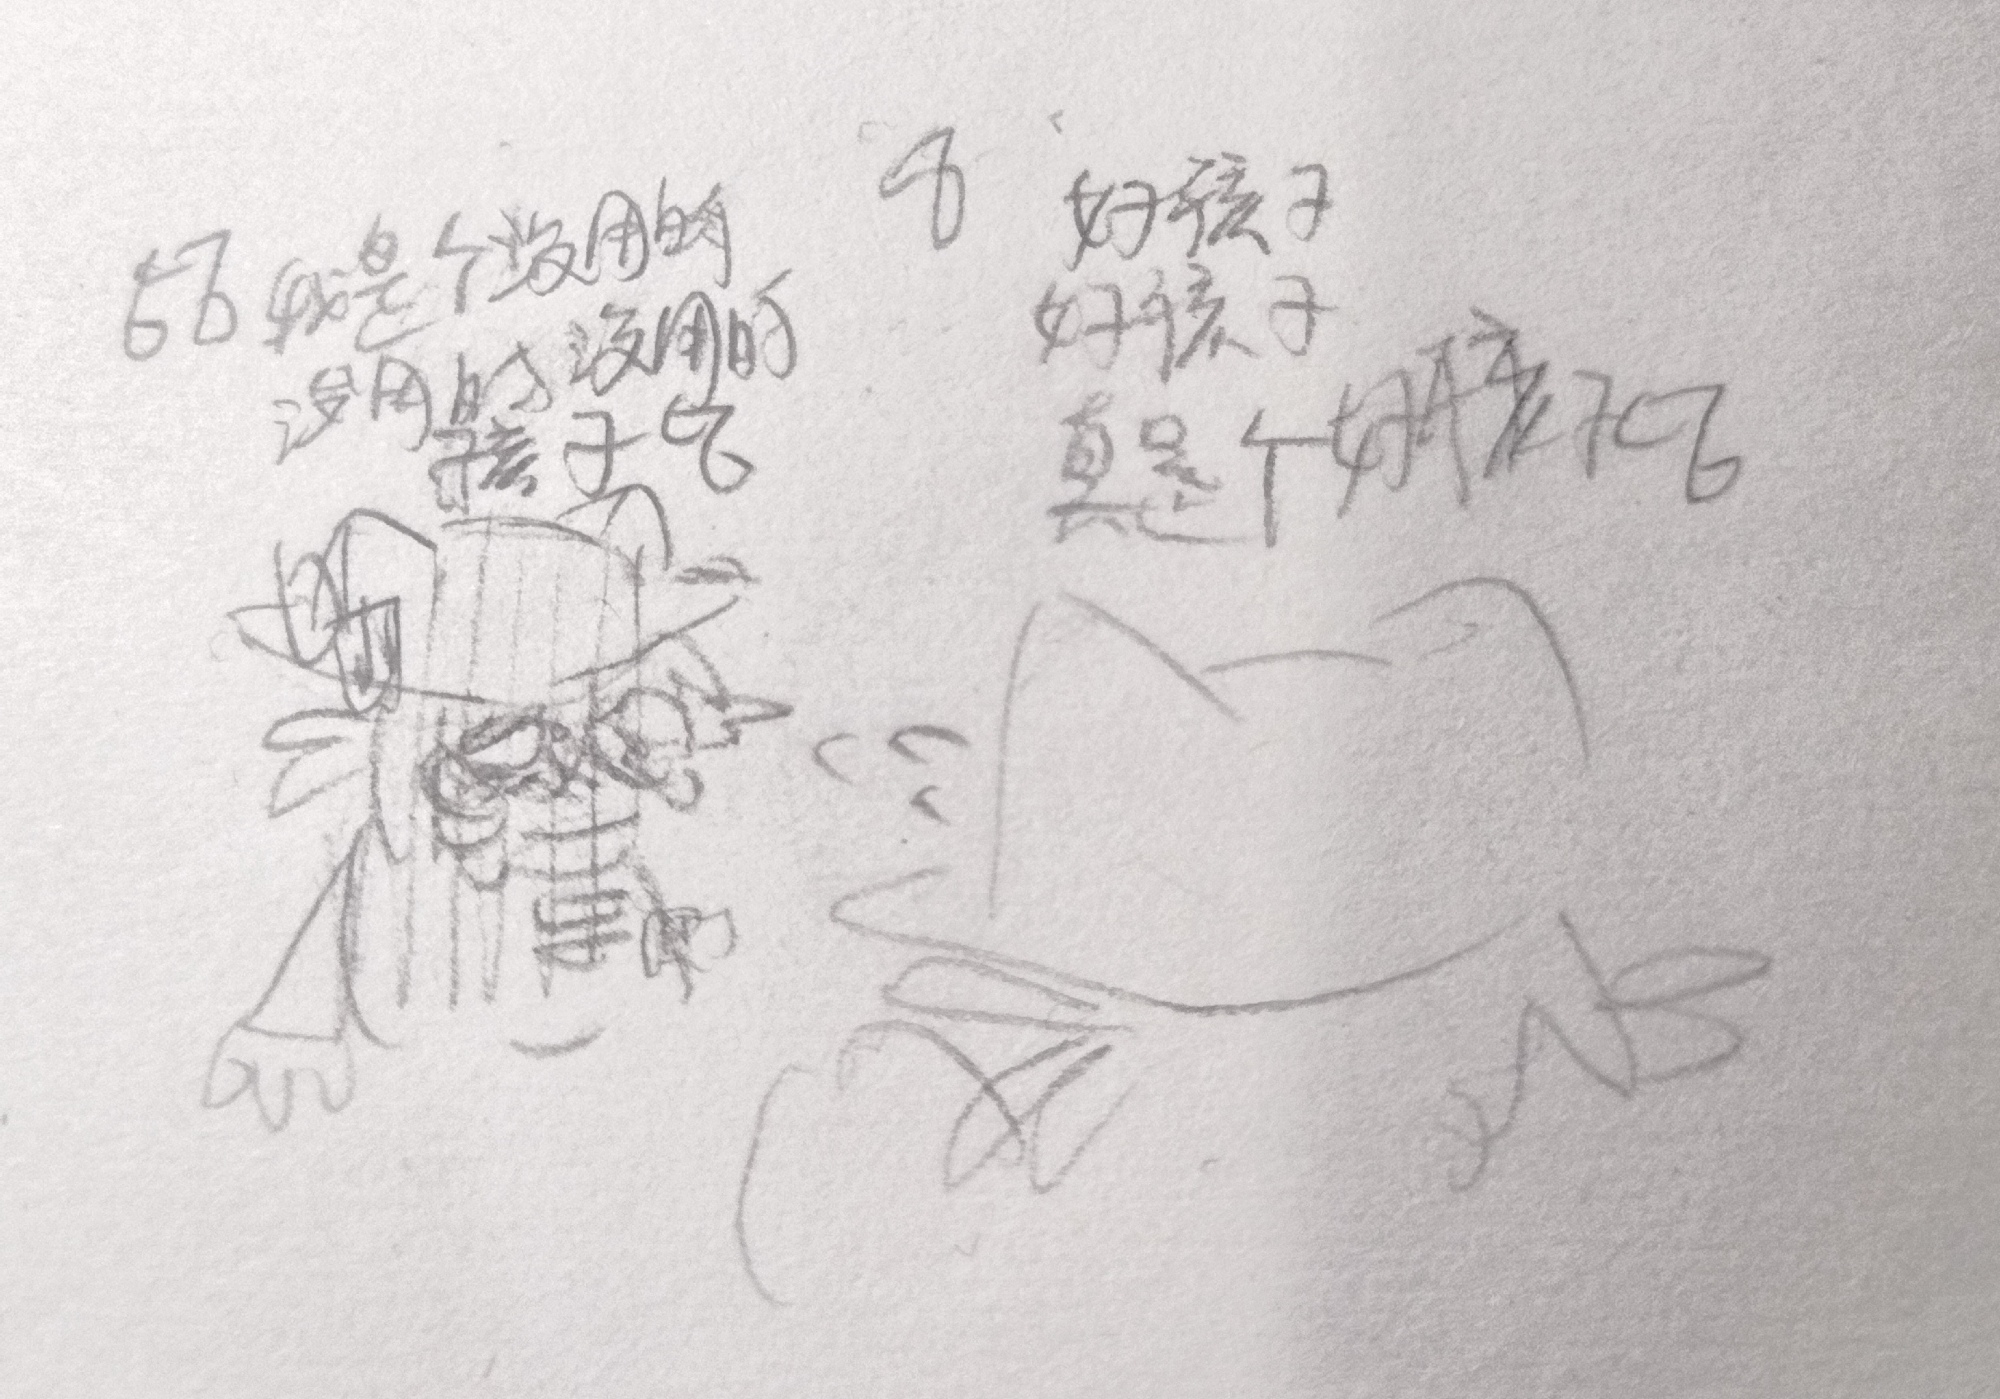 “我是个没用的
没用的没用的
孩子”
“好孩子
好孩子
真是个好孩子”